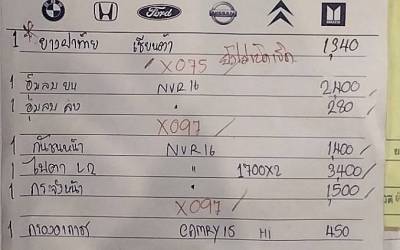 Ford NISSAN
1 * ยางฝาท้าย เซียนต้า 1,340
X075
1 อุ้มลม บน NVR16 2,400
1 อุ้มลม ล่าง 280
X097
1 กันชนหน้า NVR16 1,400
1 ไฟตา LR " 1700X2 3,400
1 กระจังหน้า " 1,500
X097
1 กรองอากาศ CAMRY 15 HI 450